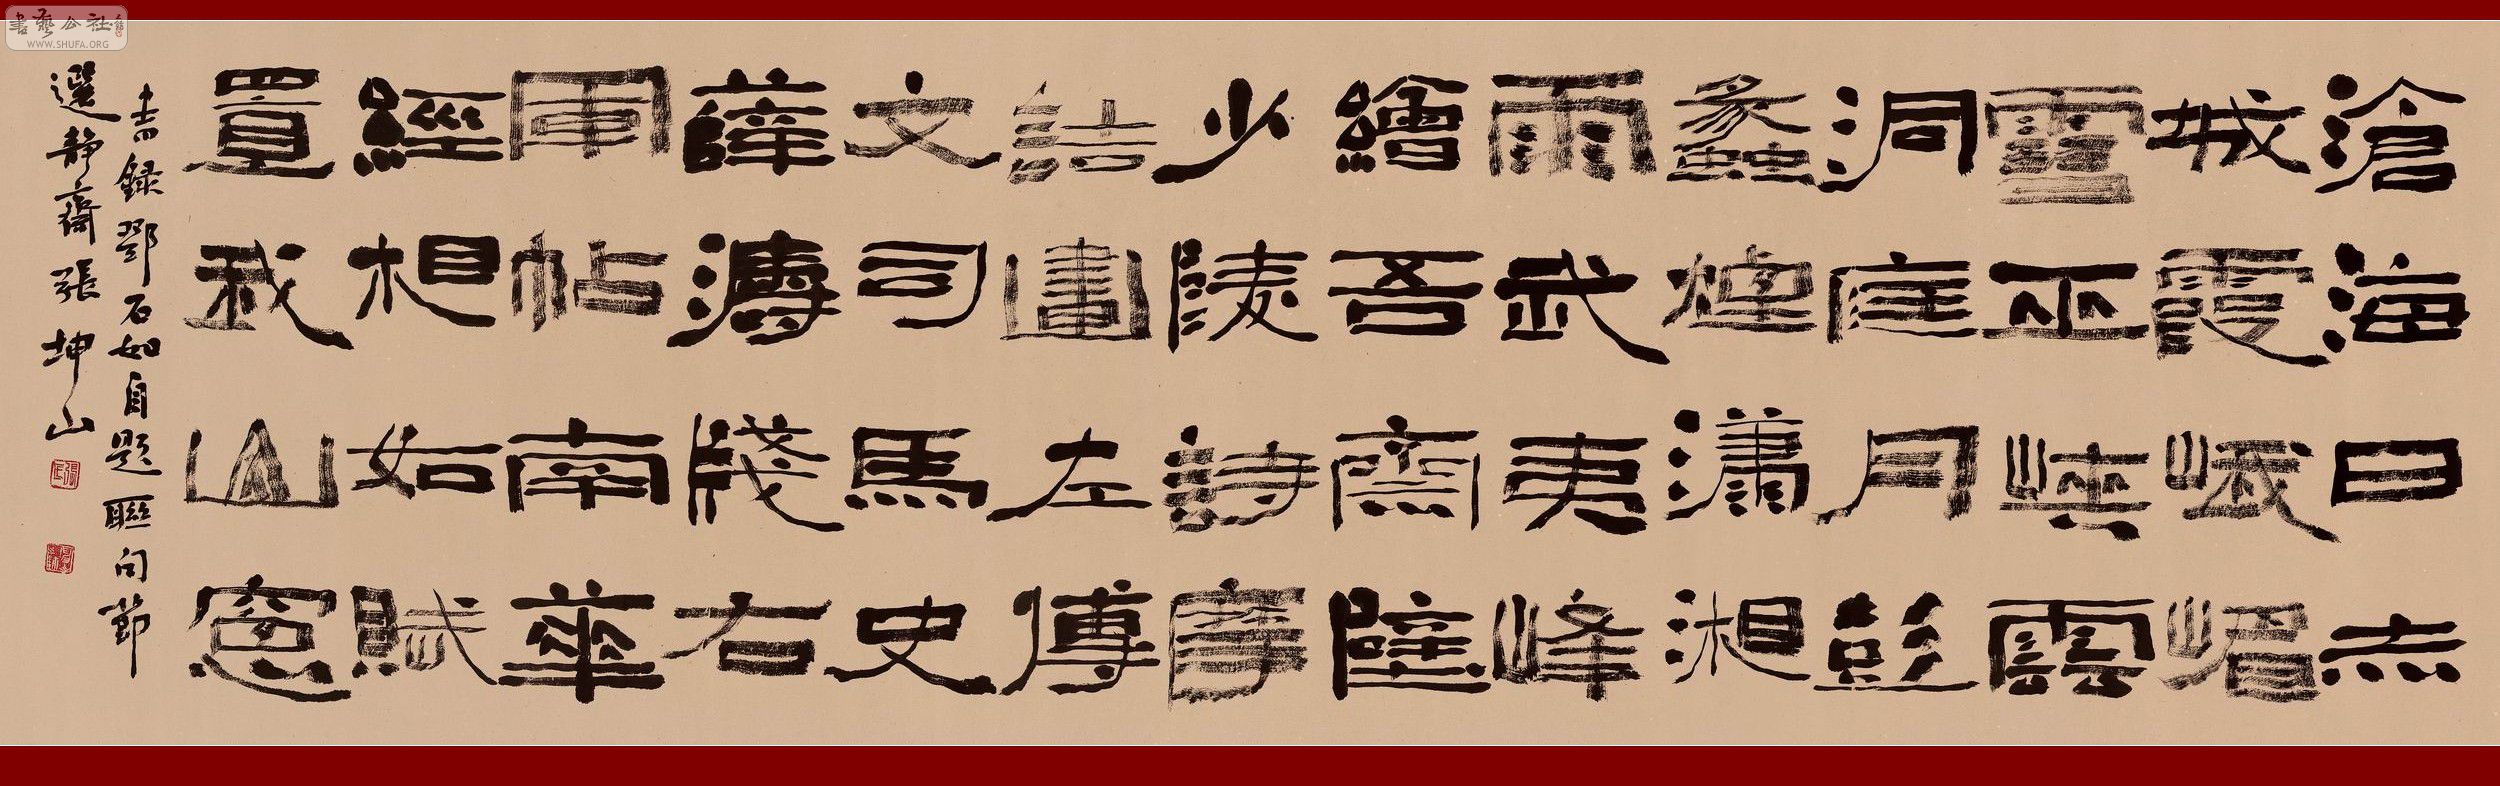 滄海日赤
城霞峨嵋
雪巫峽雲
洞庭月彭
蠡煙瀟湘
雨武夷峰
繪吾齋壁
少陵詩摩
詰畫左傳
文司馬史
薛濤牋右
軍帖南華
經相如賦
置我山窗
書錄鄧石如自題聯句節
選靜齋張坤山
書藝公社
WWW.SHUFA.ORG